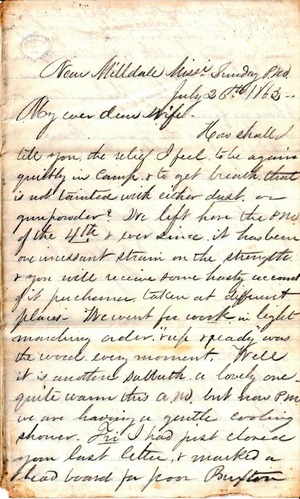 Near Milldale Missi. Sunday P.M.
July 26th 1863-
My ever dear Wife.
How shall
tell you, the relief I feel, to be again
quietly in Camp, & to get breath, that
is not tainted with either dust, or
gunpowder? We left here the P.M.
of the 4th & ever since, it has been
one incessant strain on the strength
& you will receive some hasty account
of it perchance, taken at different
places- We went for work in light
marching order, "up & ready" was
the word, every moment. Well
it is another Sabbath a lovely one
quite warm this A.M. but now P.M.
we are having a gentle cooling
shower. Fri I had just closed
your last letter, & marked a
head board for poor Buxton